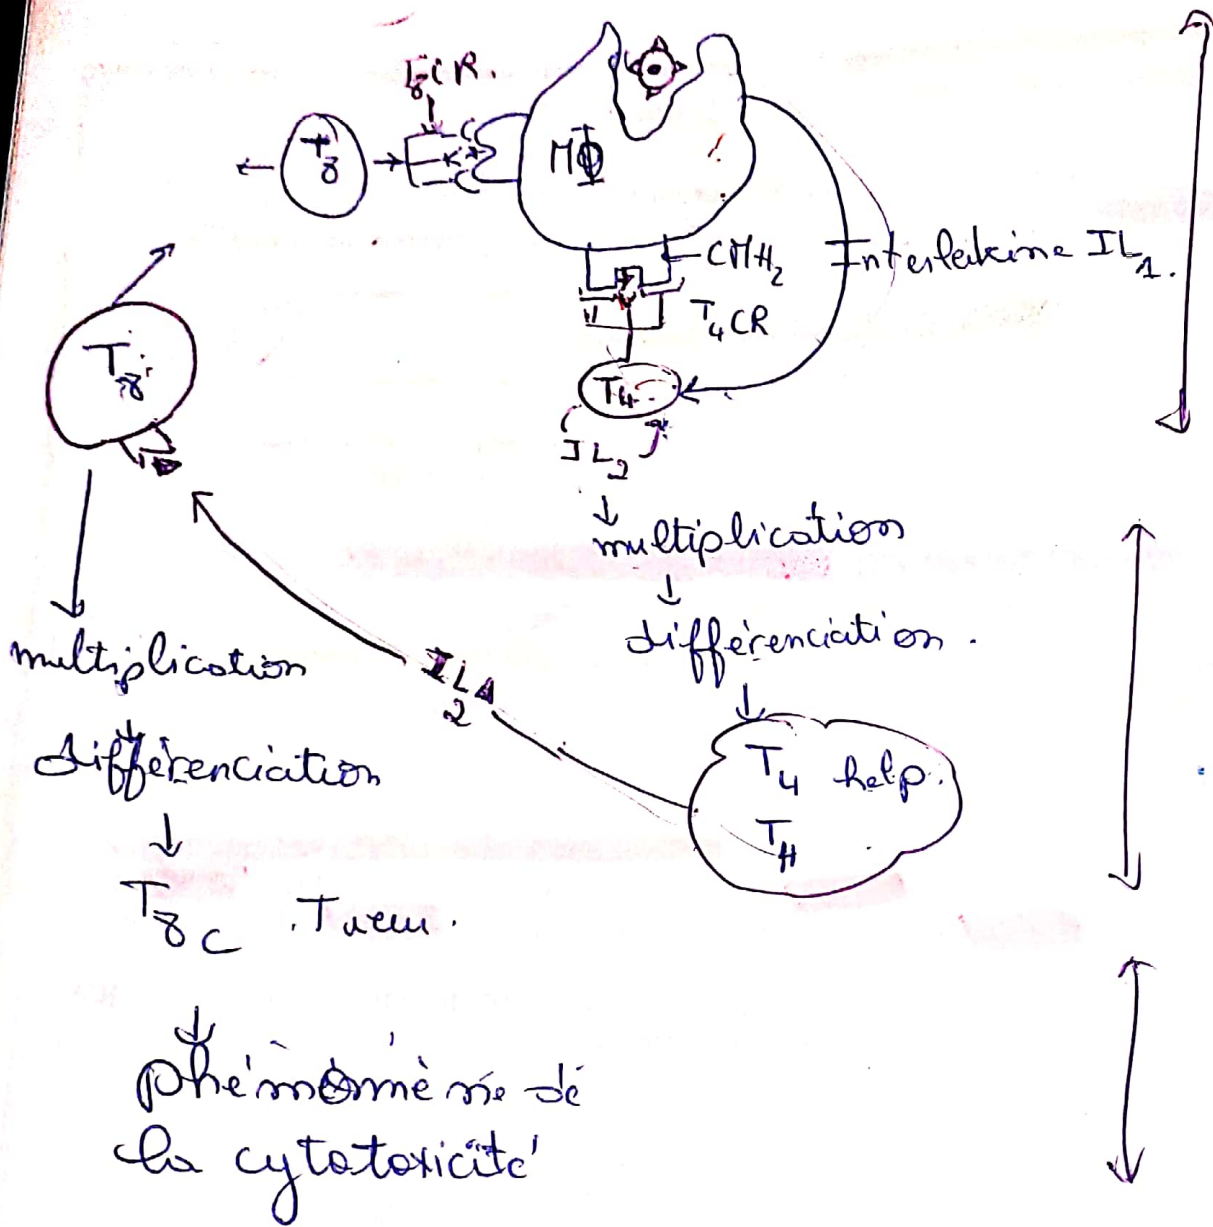 T8CR.
T8
MΦ
CMH2
Interleukine IL1.
T4CR
T8
T4
IL2
multiplication
différenciation.
multiplication
IL2
différenciation
T4 help.
TH
T8C . Tueur.
phénomène de
la cytotoxicité